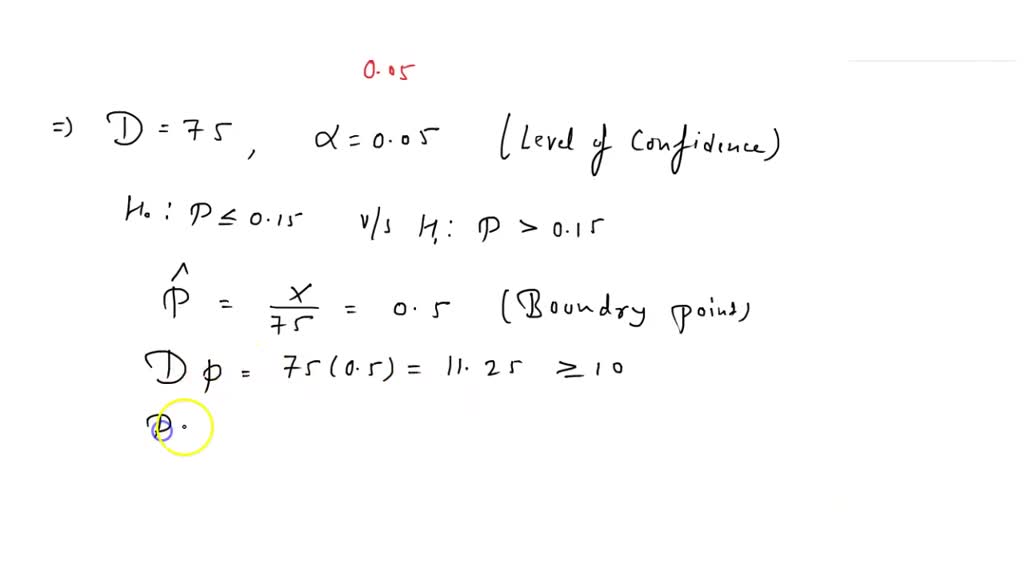 0.05
=) D = 75, α = 0.05 (Level of Confidence)
H₀ : P ≤ 0.15 v/s H₁ : P > 0.15
P̂ = X/75 = 0.5 (Boundry point)
D p = 75(0.5) = 11.25 ≥ 10
D.